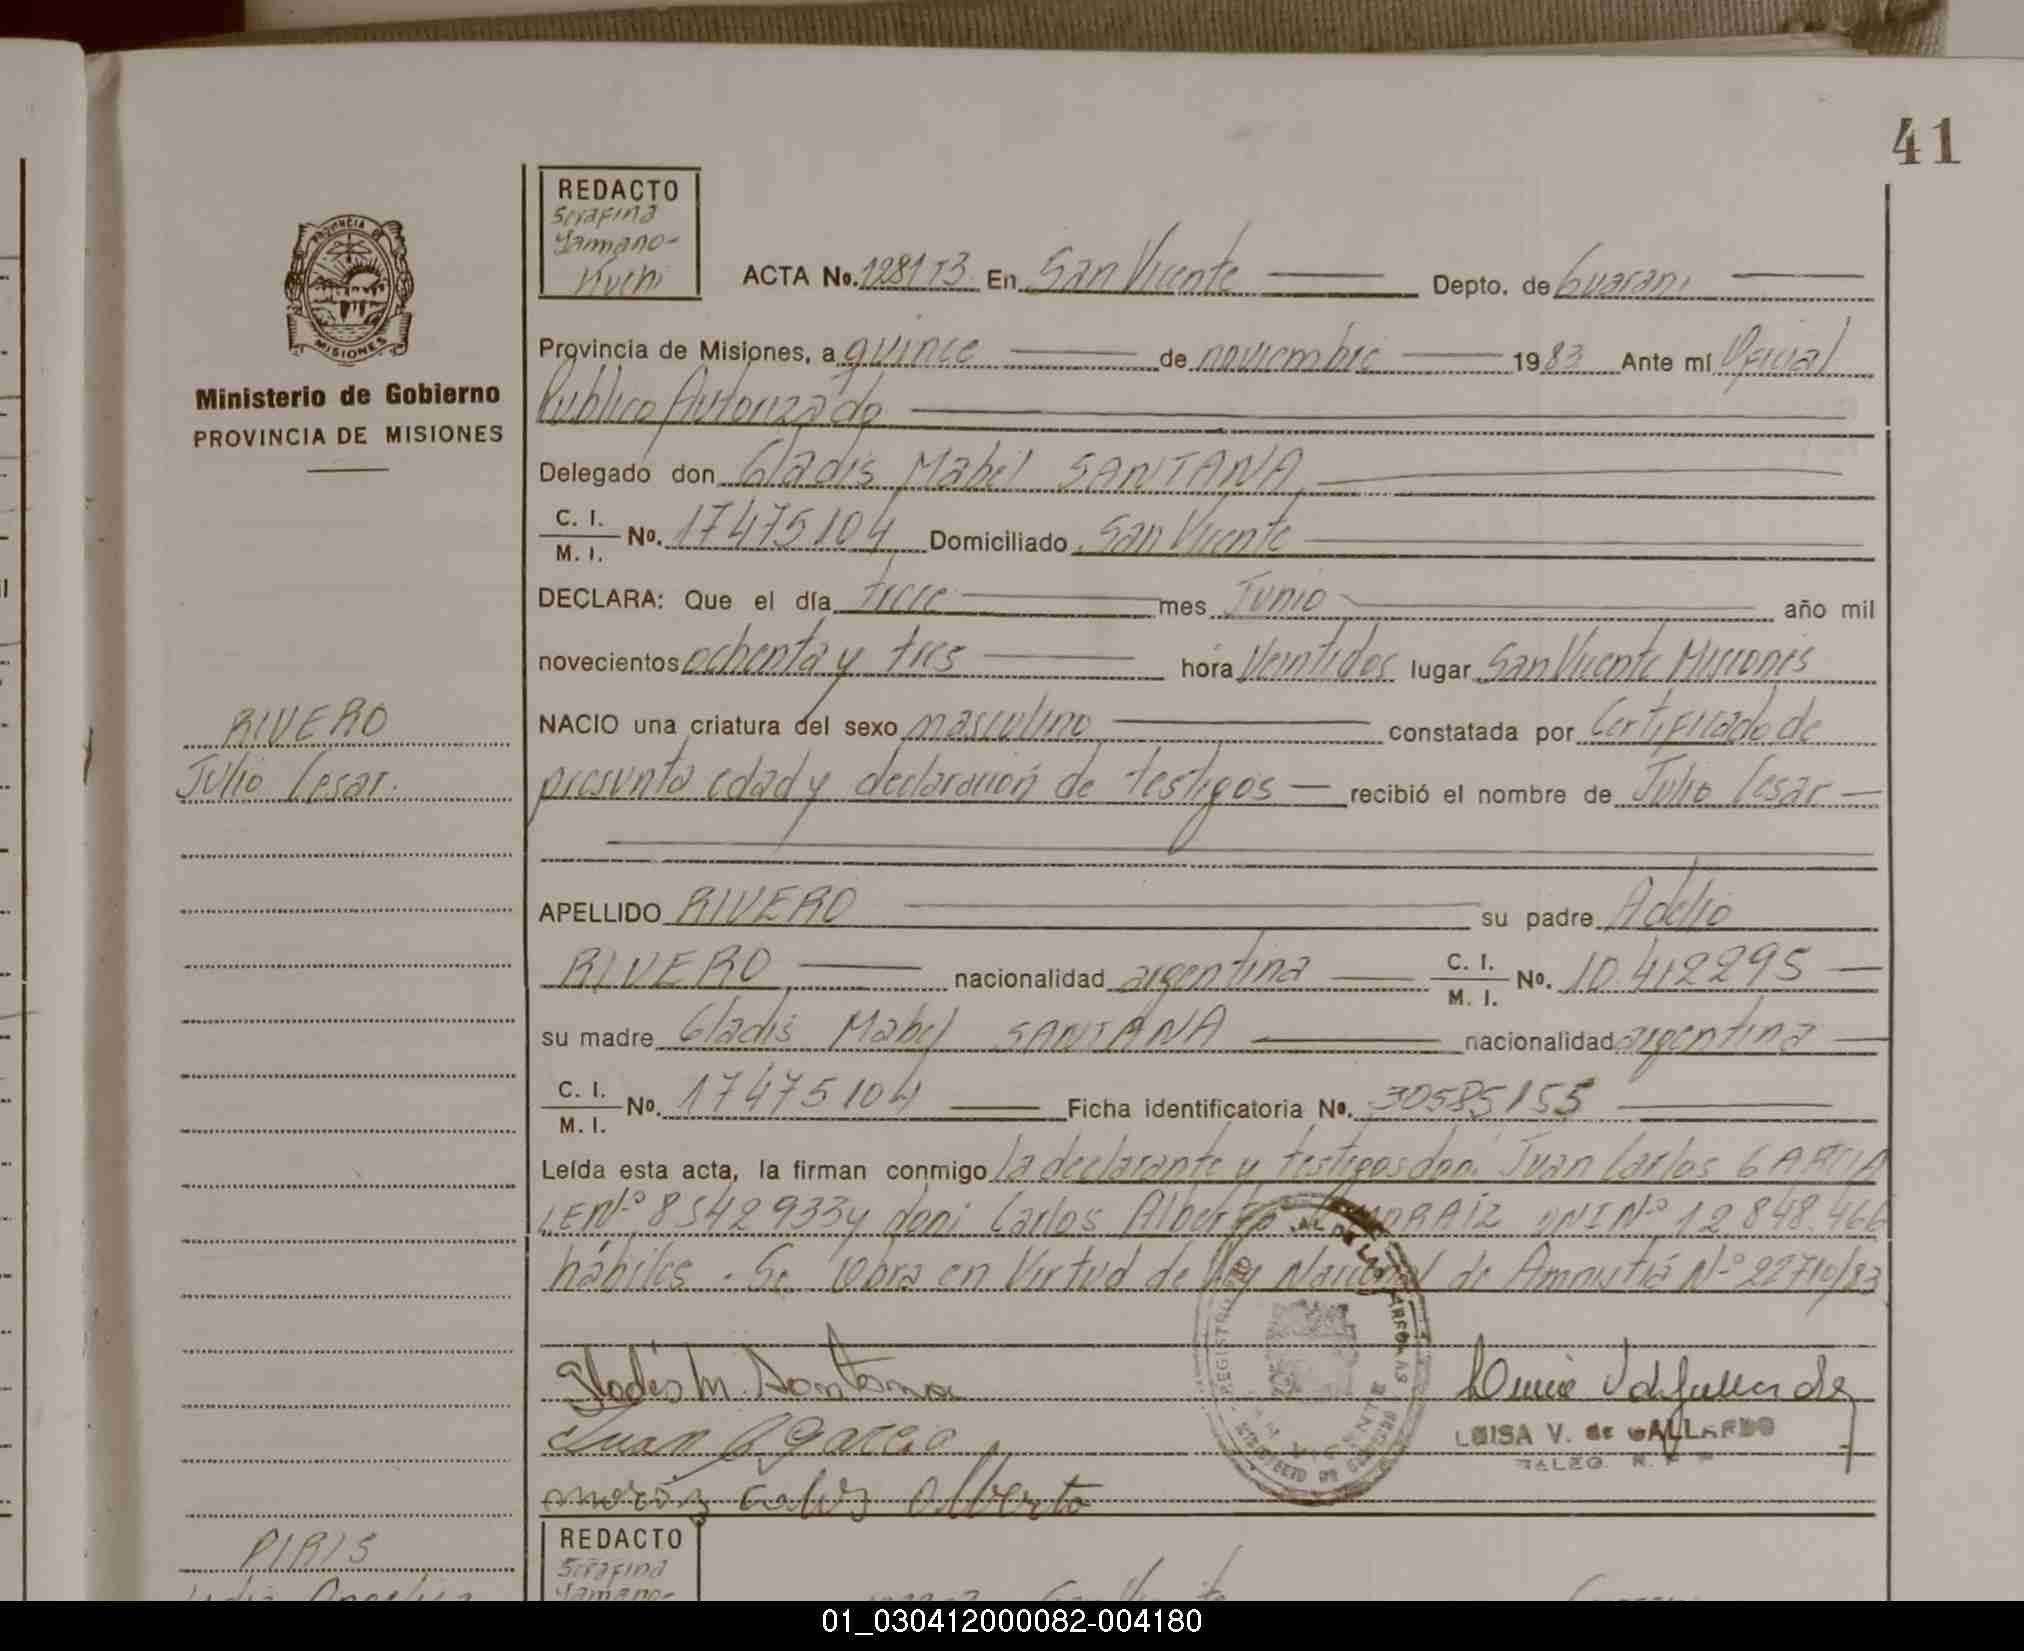 41
REDACTO
Serafina
Yamano-
Kuchi
PROVINCIA DE
MISIONES
Ministerio de Gobierno
PROVINCIA DE MISIONES
ACTA No. 1281 T3 En San Vicente Depto. de Guarani
Provincia de Misiones, a quince de noviembre 1983 Ante mí Oficial
Publico Autorizado
Delegado don Gladis Mabel SANTANA
C. I.
M. I. No. 17475104 Domiciliado San Vicente
DECLARA: Que el día trece mes Junio año mil
novecientos ochenta y tres hora Veintidos lugar San Vicente Misiones
RIVERO
NACIO una criatura del sexo masculino constatada por Certificado de
Julio Cesar.
presunta edad y declaración de testigos — recibió el nombre de Julio Cesar —
APELLIDO RIVERO su padre Adelio
RIVERO nacionalidad argentina C. I.
M. I. No. 10.412295 —
su madre Gladis Mabel SANTANA nacionalidad argentina —
C. I.
M. I. No. 17475104 Ficha identificatoria No. 30585155
Leída esta acta, la firman conmigo la declarante y testigos don: Juan Carlos GARCIA
LE Nº 8542933 y don: Carlos Alberto MORAIZ DNI Nº 12.848.466
hábiles. Se labra en Virtud de Ley Nacional de Amnistiá Nº 22710/83
Gladis M. Santana
Juan C Garcia
moraiz Carlos Alberto
LUISA V. de GALLARDO
REDACTO
Serafina
Yamano-
PIRIS
01_030412000082-004180